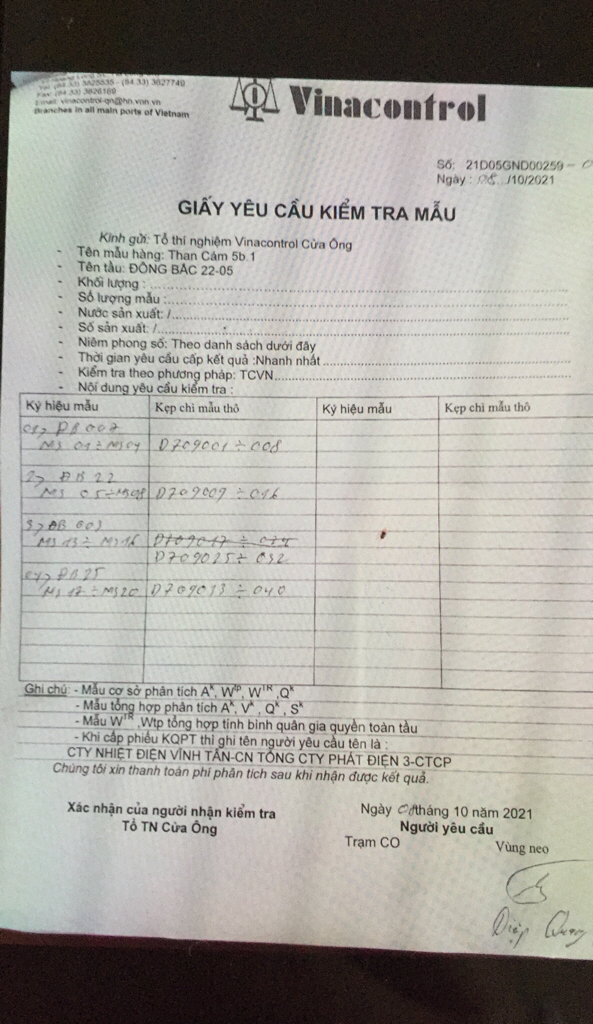 (84.33) 3825535 - (84.33) 3827740
Fax: (84.33) 3826169
Email: vinacontrol-qn@hn.vnn.vn
Branches in all main ports of Vietnam
Vinacontrol
Số: 21D05GND00259 -
Ngày : 08.../10/2021
GIẤY YÊU CẦU KIỂM TRA MẪU
Kính gửi: Tổ thí nghiệm Vinacontrol Cửa Ông
- Tên mẫu hàng: Than Cám 5b.1
- Tên tầu: ĐÔNG BẮC 22-05
- Khối lượng :
- Số lượng mẫu :
- Nước sản xuất: /
- Số sản xuất: /
- Niêm phong số: Theo danh sách dưới đây
- Thời gian yêu cầu cấp kết quả :Nhanh nhất
- Kiểm tra theo phương pháp: TCVN
- Nội dung yêu cầu kiểm tra :
Ký hiệu mẫu Kẹp chì mẫu thô Ký hiệu mẫu Kẹp chì mẫu thô
01> ĐB 007
MS 01 ÷ MS04 D709001 ÷ 008
2> ĐB 22
MS 05 ÷ MS08 D709009 ÷ 016
3> ĐB 003
MS 13 ÷ MS16 D709017 ÷ 024
D709025 ÷ 032
04> ĐB 25
MS 17 ÷ MS20 D709033 ÷ 040
Ghi chú: - Mẫu cơ sở phân tích Aᵏ, Wᵗᵖ, Wᵀᴿ ,Qᵏ
- Mẫu tổng hợp phân tích Aᵏ, Vᵏ, Qᵏ, Sᵏ
- Mẫu Wᵀᴿ ,Wtp tổng hợp tính bình quân gia quyền toàn tầu
- Khi cấp phiếu KQPT thì ghi tên người yêu cầu tên là :
CTY NHIỆT ĐIỆN VĨNH TÂN-CN TỔNG CTY PHÁT ĐIỆN 3-CTCP
Chúng tôi xin thanh toán phí phân tích sau khi nhận được kết quả.
Xác nhận của người nhận kiểm tra
Tổ TN Cửa Ông
Ngày 08 tháng 10 năm 2021
Người yêu cầu
Trạm CO Vùng neo
Diệp